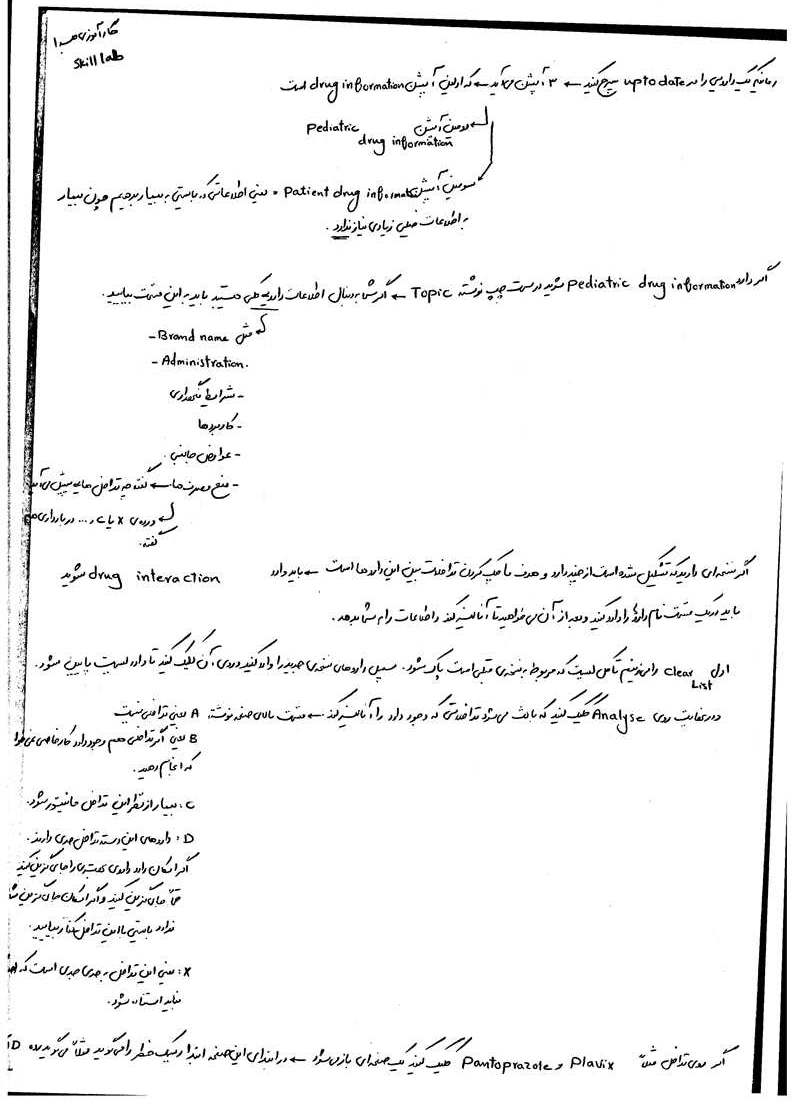 کارآموزی مبدا
Skill lab
زمانیکه یک دارویی را در up to date سرچ کنید ← ۳ آپشن می‌آید ← که اولین آپشن drug information است
دومین آپشن Pediatric
drug information
سومین آپشن Patient drug information = یعنی اطلاعاتی که بایستی به بیمار بدهیم چون بیمار
به اطلاعات خیلی زیادی نیاز ندارد.
اگر وارد Pediatric drug information شوید در سمت چپ نوشته Topic ← اگر شما به دنبال اطلاعات داروی کلی هستید باید به این قسمت بیایید.
مثل Brand name -
- Administration.
- شرایط نگهداری
- کاربردها
- عوارض جانبی.
- منع مصرف ها ← گفته چه تداخل هایی پیش می‌آ
رده‌ی X یا C و ... در بارداری
گفته.
اگر نسخه ای دارید که تشکیل شده است از چند دارو و هدف ما چک کردن تداخلات بین این داروها است ← باید وارد drug interaction شوید
باید در یک قسمت نام داروها را وارد کنید و بعد از آن می‌خواهید تا آنالیز کند و اطلاعات را به شما بدهد.
اول Clear List را می‌زنیم تا کل لیست که مربوط به نسخه‌ی قبلی است پاک شود. سپس داروهای نسخه‌ی جدید را وارد کنید و روی آن کلیک کنید تا وارد لیست پایین شود.
و در نهایت روی Analyse کلیک کنید که باعث می‌شود تداخلاتی که وجود دارد را آنالیز کند. ← قسمت بالای صفحه نوشته A یعنی تداخلی نیست
B یعنی اگر تداخلی هم وجود دارد کار خاصی نمی‌خوا
که انجام دهید.
C: بیمار از نظر این تداخل مانیتور شود.
D: داروهای این دسته تداخل جدی دارند.
اگر امکان دارد داروی بعدی را جای گزین کنید
حتماً جای گزین کنید و اگر امکان جای گزینی
ندارد بایستی با این تداخل کنار بیایید.
X: یعنی این تداخل به حدی جدی است که
نباید استفاده شود.
اگر روی تداخل مثلاً Plavix و Pantoprazole کلیک کنید یک صفحه‌ای باز می‌شود ← در ابتدای این صفحه ابتدا ریسک خطر را می‌گوید مثلاً می‌گوید رده D